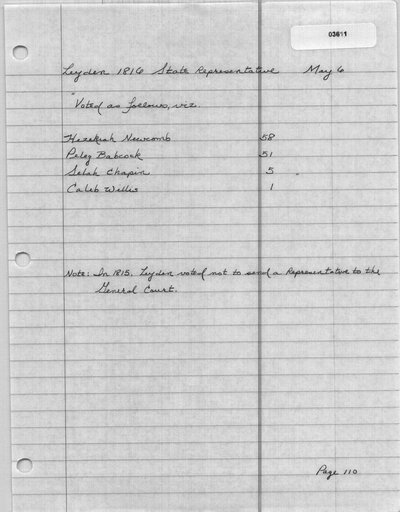 03611
Leyden 1816 State Representative May 6
"Voted as follows, viz.
Hezekiah Newcomb 58
Peleg Babcock 51
Selah Chapin 5 "
Caleb Wells 1
Note: In 1815, Leyden voted not to send a Representative to the
General Court.
Page 110